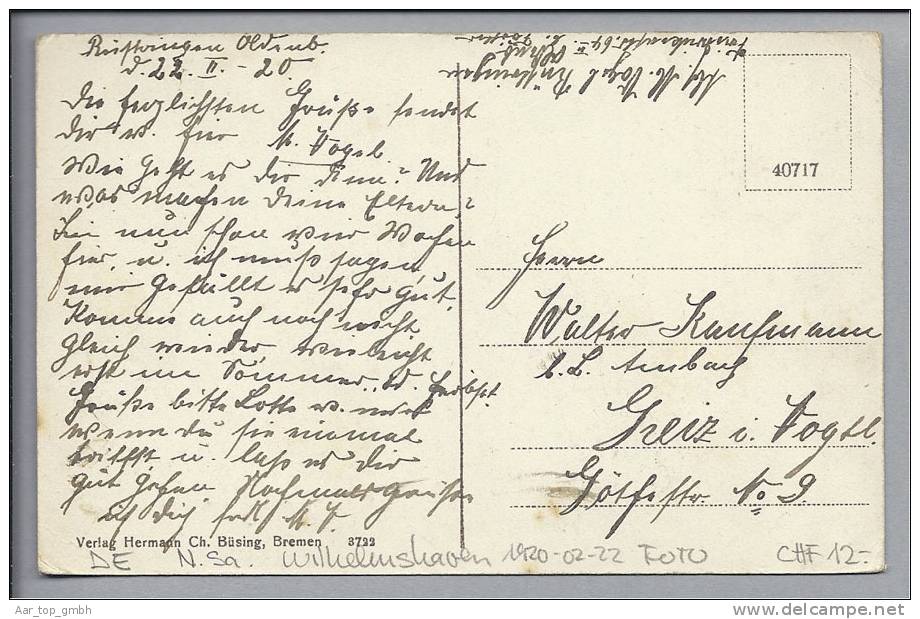 Rüstringen Oldenb.
d. 22. II. - 20.
Die herzlichsten Grüße sendet
dir v. hier
M. Vogel.
Wie geht es dir denn? Und
was machen deine Eltern?
Bin nun schon vier Wochen
hier, u. ich muß sagen,
mir gefällt es sehr gut.
Komme auch noch nicht
gleich wieder, vielleicht
erst im Sommer, od. Herbst.
Grüße bitte Lotte v. mir
wenn du sie einmal
triffst, u. laß es dir
gut gehen. Nochmals
dich M. V.
Verlag Hermann Ch. Büsing, Bremen 3722
Abs. M. Vogel Rüstringen
40717
Herrn
Walter Kaufmann
b. L. Ambach
Greiz i. Vogtl.
Götheſtr. No 9.
DE N.Sa. Wilhelmshaven 1920-02-22 FOTO CHF 12.-
Aar_top_gmbh
www.delcampe.net